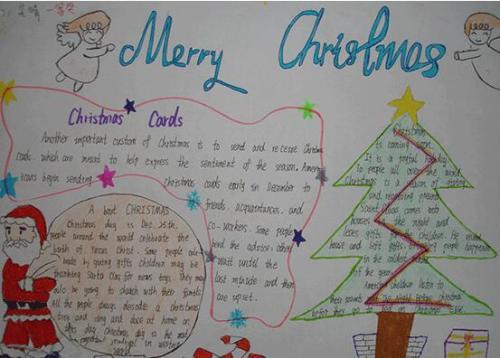 Merry Christmas
Christmas Cards
Another important custom of Christmas is to send and receive Christmas
cards which are meant to help express the sentiment of the season. Ameri
cans begin sending Christmas cards early in December to
friends, acquaintances, and
co-workers. Some people
until the
last minute and then
are upset.
A bout CHRISTMAS
Christmas day is Dec 25th.
people around the world celebrate the
birth of Jesus Christ. Some people
by giving gifts Children may be
thanking Santa Claus for news toys. They may
be going to church with their families
All the people always decorate a christmas
tree and sing and dance at home on
this day. Christmas day is the most
popular in western
world.
Christmas
is coming soon.
It is a joyful holiday
to people all over the world
Christmas is a season of giving
and receiving presents
Santa Claus comes into
houses in the night and
leaves gifts for the children.
house and soft gifts. people happen
in the coldest
of the year
American children listen to
their parents the night before christmas
before they go to bed on Christmas Eve.